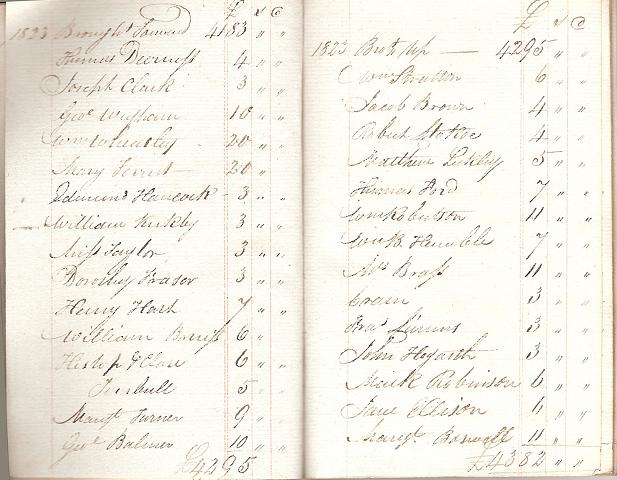 £ s d
1823 Brought Forward 4183 " "
Thomas 4 " "
Joseph Clark 3 " "
Geo. 10 " "
Wm Wheatley 20 " "
Mary 20 "
Edmund Hancock 3 " "
William Kirkby 3 " "
Miss Taylor 3 " "
Dorothy Fraser 3 " "
Henry 7 " "
William 6 "
Hislop & Clare 6 " "
Turnbull 5 " "
Margt Turner 9 " "
Geo. Balmer 10 " "
£4295
£ s d
1823 Brot Up — 4295 " "
Wm Stratton 6 " "
Jacob Brown 4 " "
Robert Stokoe 4 " "
Matthew 5 " "
Thomas Ford 7 " "
Wm Robertson 11 " "
Wm B. Humble 7 " "
Mrs Brass 11 " "
Cram 3 " "
Fras 3 " "
John Hogarth 3 " "
Mark Robinson 6 " "
Jane Ellison 6 " "
Margt. Boswell 11 " "
£4382 " "